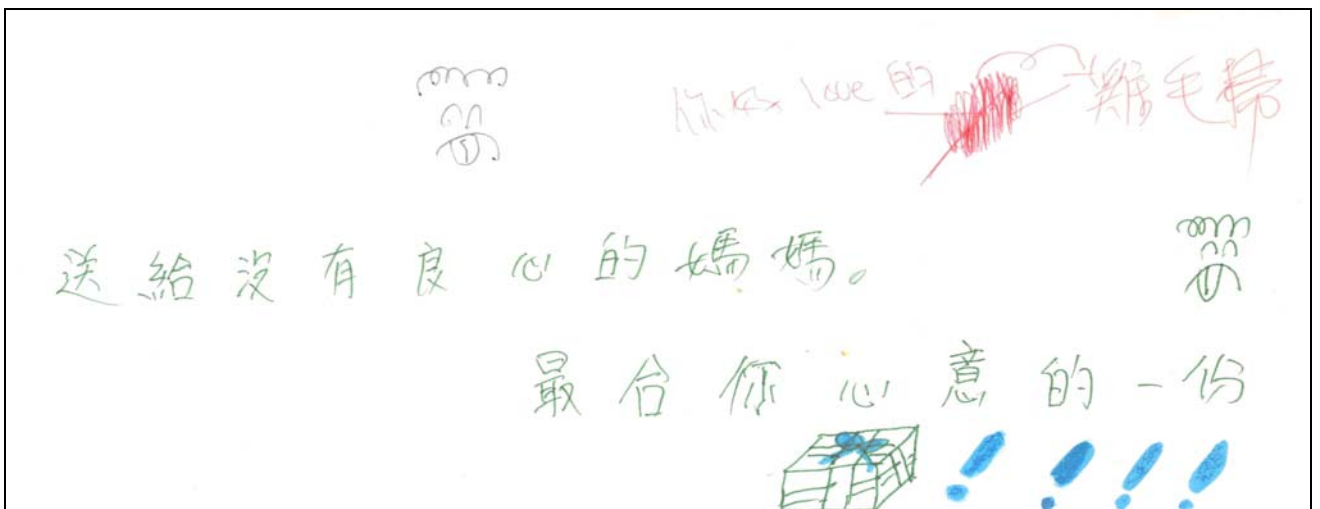 你好 love 的 雞毛掃
送給沒有良心的媽媽。
最合你心意的一份
!!!!